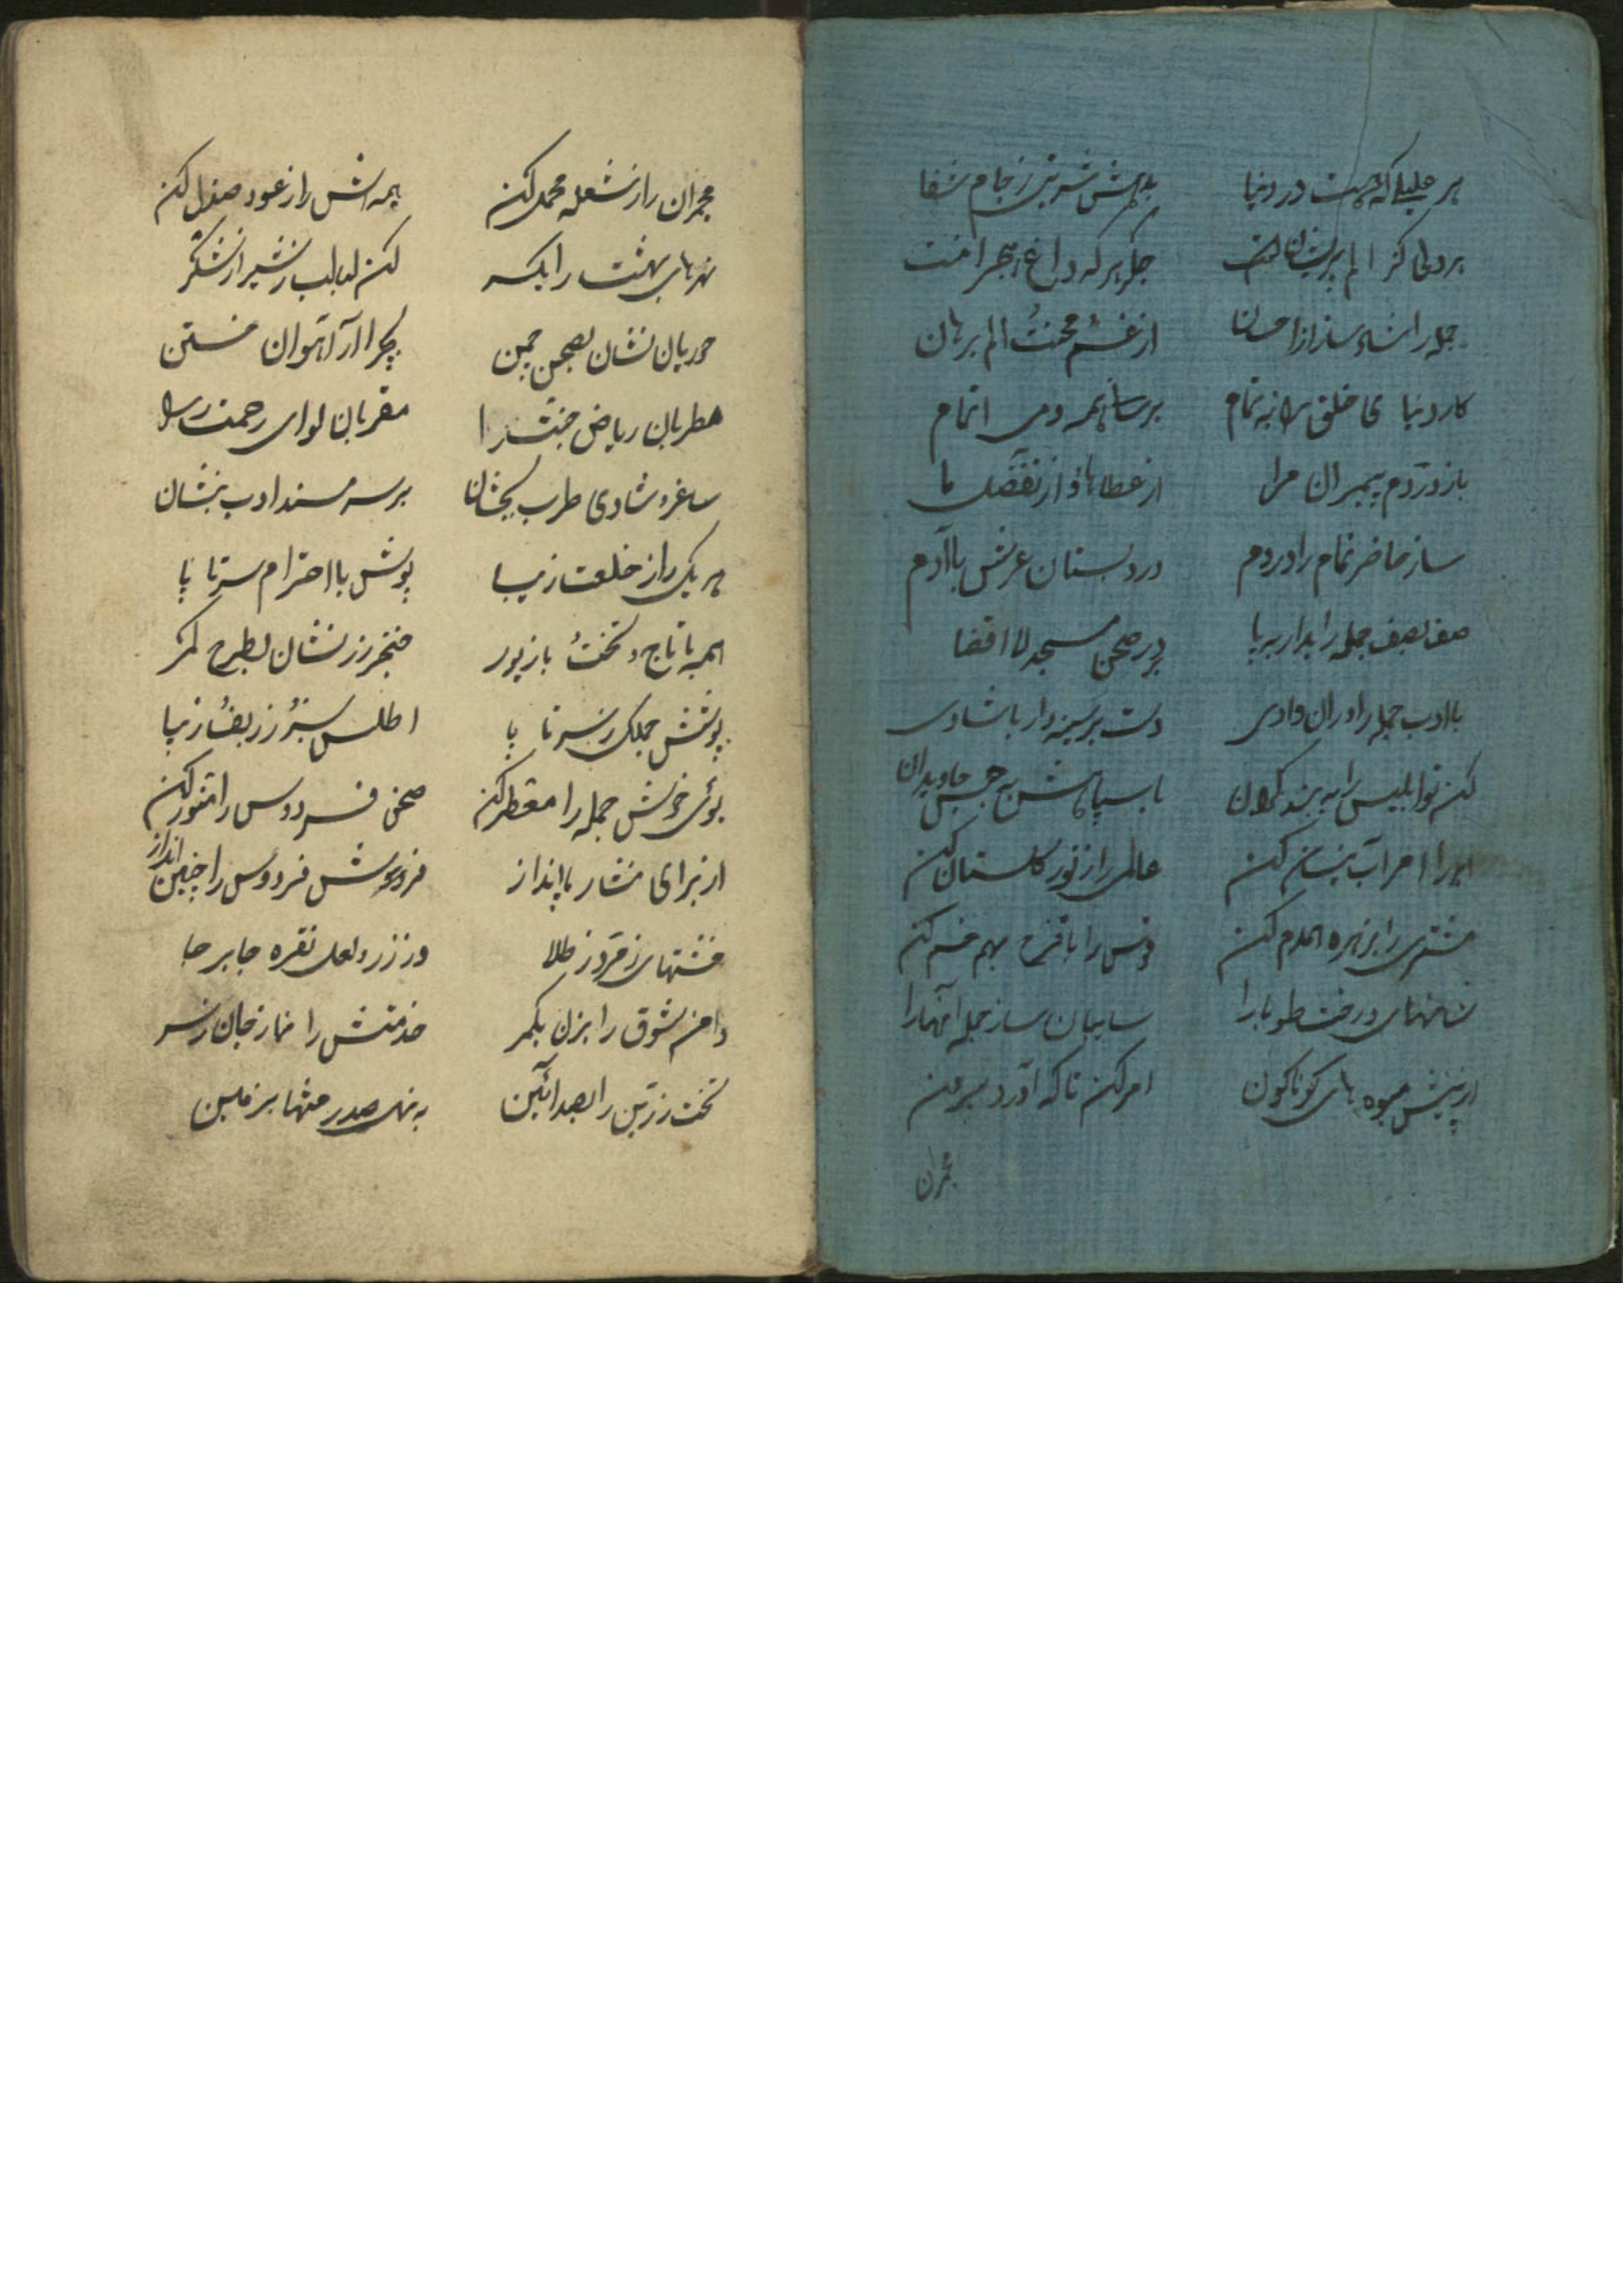 هر علیلی که هست در دنیا بدهش شربتی ز جام شفا
هر دلی کز الم پریشان جگر هر که داغ هجران
جمله را شاد ساز از احسان از غم محنت الم برهان
کار دنیا خلق به تمام برسان همه اتمام
باز در دم پیمبران مرا از عطاها و از تفضل ما
ساز حاضر تمام را در دم در دبستان عرش با آدم
صف بصف جمله را بدار به پا در صحن مسجد لا اقصا
با ادب جمله را در ان وادی دست بر سینه دار با شادی
کن تو ابلیس را به بند کران با سپاهش به حبس جاویدان
کن عالمی را ز نور کلستان کن
مشتری را بزهره همدم کن را با قزح بهم خم کن
شاخهای درخت طوبا را سایبان ساز جمله آنهارا
از پیش میوه های کوناکون امر کن تا که آورد بیرون
مجمران
مجمران را ز شعله محمل کن همه اش را ز عود صندل کن
نهرهای بهشت را یکسر کن لبالب ز شیر از شکر
حوریان نشان بصحن چمن بچرا آر آهوان ختن
مطربان ریاض جنت را مقربان لوای رحمت را
ساغر شادی طرب بچشان بر سر مسند ادب بنشان
هر یک را ز خلعت زیبا پوش با احترام سر تا پا
همه با تاج و تخت با زیور خنجر زر نشان بطرح کمر
پوشش جملکی ز سر تا پا اطلس سبز زربفت زیبا
بوی خوش جمله را معطر کن صحن فردوس را منور کن
از برای نثار پا انداز فرش فردوس را چنین انداز
خشتهای زمرد ز طلا در زر و لعل نقره جا بر جا
دامن شوق را بزن بکمر خدمتش را نما ز جان ز سر
تخت زرین را بصد آئین به نهی صدر منتها بر زمین